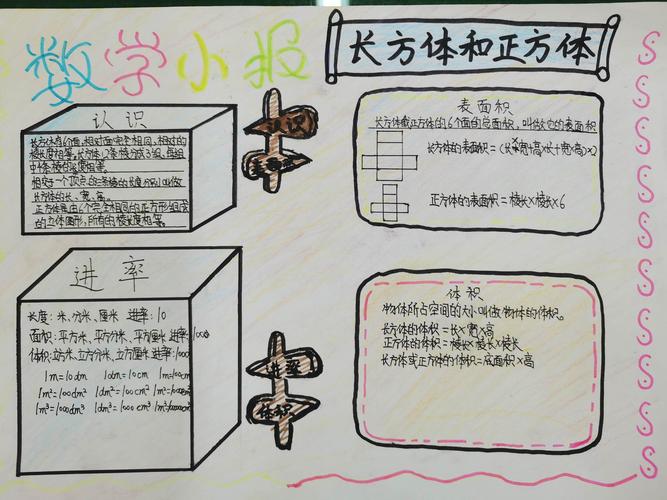 数学小报
长方体和正方体
认识
长方体有6个面,相对面完全相同,相对的
棱长度相等。长方体12条棱分为3组,每组
中4条棱的长度相等。
相交于一个顶点的三条棱的长度分别叫做
长方体的长、宽、高。
正方体是由6个完全相同的正方形组成
的立体图形,所有的棱长度相等。
认识
表面积
表面积
长方体或正方体的6个面的总面积,叫做它的表面积
长方体的表面积=
正方体的表面积=棱长×棱长×6
进率
长度:米、分米、厘米 进率:10
面积:平方米、平方分米、平方厘米 进率:
体积:立方米、立方分米、立方厘米 进率:1000
1m=10dm 1dm=10cm 1m=100cm
1m²=100dm² 1dm²=100cm²
1m³=1000dm³ 1dm³=1000cm³
进率
体积
体积
物体所占空间的大小叫做物体的体积。
长方体的体积=长×宽×高
正方体的体积=棱长×棱长×棱长
长方体或正方体的体积=底面积×高